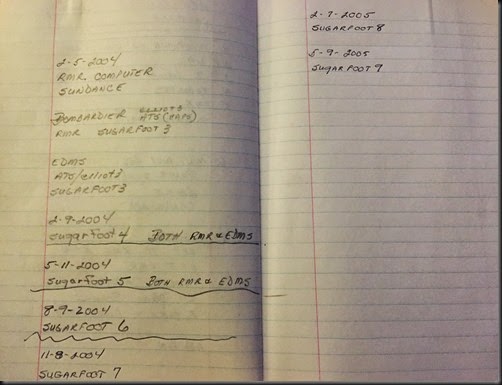 2-5-2004
RMR COMPUTER
SUNDANCE
BOMBARDIER ATS (CAPS)
RMR SUGARFOOT 3
EDMS
ATS/elliot3
SUGARFOOT3
2-9-2004
sugarfoot 4 BOTH RMR & EDMS
5-11-2004
sugarfoot 5 BOTH RMR & EDMS
8-9-2004
SUGARFOOT 6
11-8-2004
SUGARFOOT 7
2-7-2005
SUGARFOOT 8
5-9-2005
SUGARFOOT 9